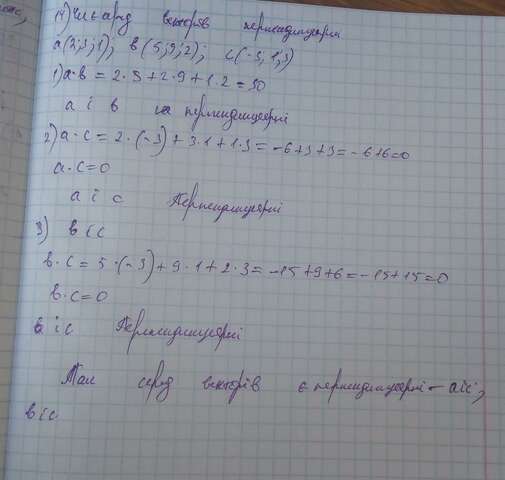 14) Чи є серед векторів перпендикулярні
a(2;3;1); в(5;9;2); c(-3;1;3)
1) a·в = 2·5+2·9+1·2=30
a і в не перпендикулярні
2) a·c = 2·(-3)+3·1+1·3=-6+3+3=-6+6=0
a·c=0
a і c Перпендикулярні
3) в і c
в·c=5·(-3)+9·1+2·3=-15+9+6=-15+15=0
в·c=0
в і c Перпендикулярні
Так серед векторів є перпендикулярні - a і c,
в і c